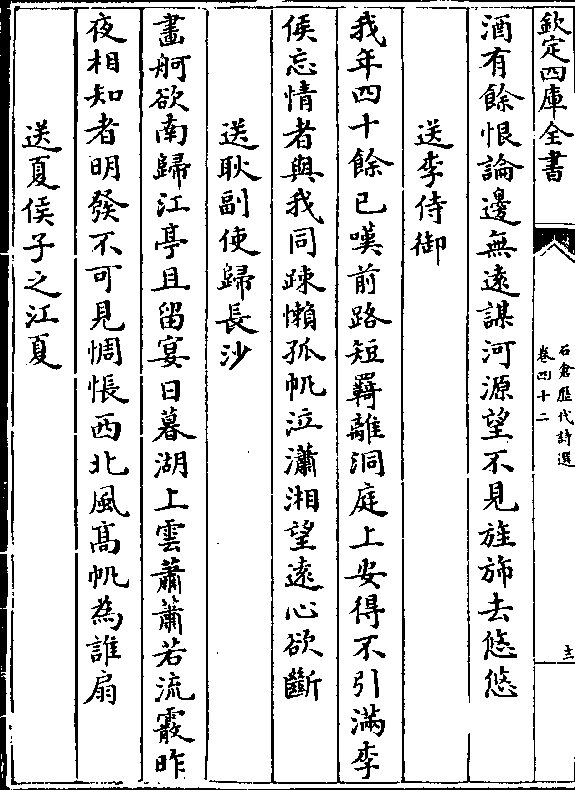 欽定四庫全書
石倉歷代詩選
卷四十二
十二
酒有餘恨論邊無遠謀河源望不見旌斾去悠悠
送李侍御
我年四十餘已嘆前路短羇離洞庭上安得不引滿李
侯忘情者與我同踈懶孤帆泣瀟湘望遠心欲斷
送耿副使歸長沙
畫舸欲南歸江亭且留宴日暮湖上雲蕭蕭若流霰昨
夜相知者明發不可見惆悵西北風髙帆為誰扇
送夏侯子之江夏